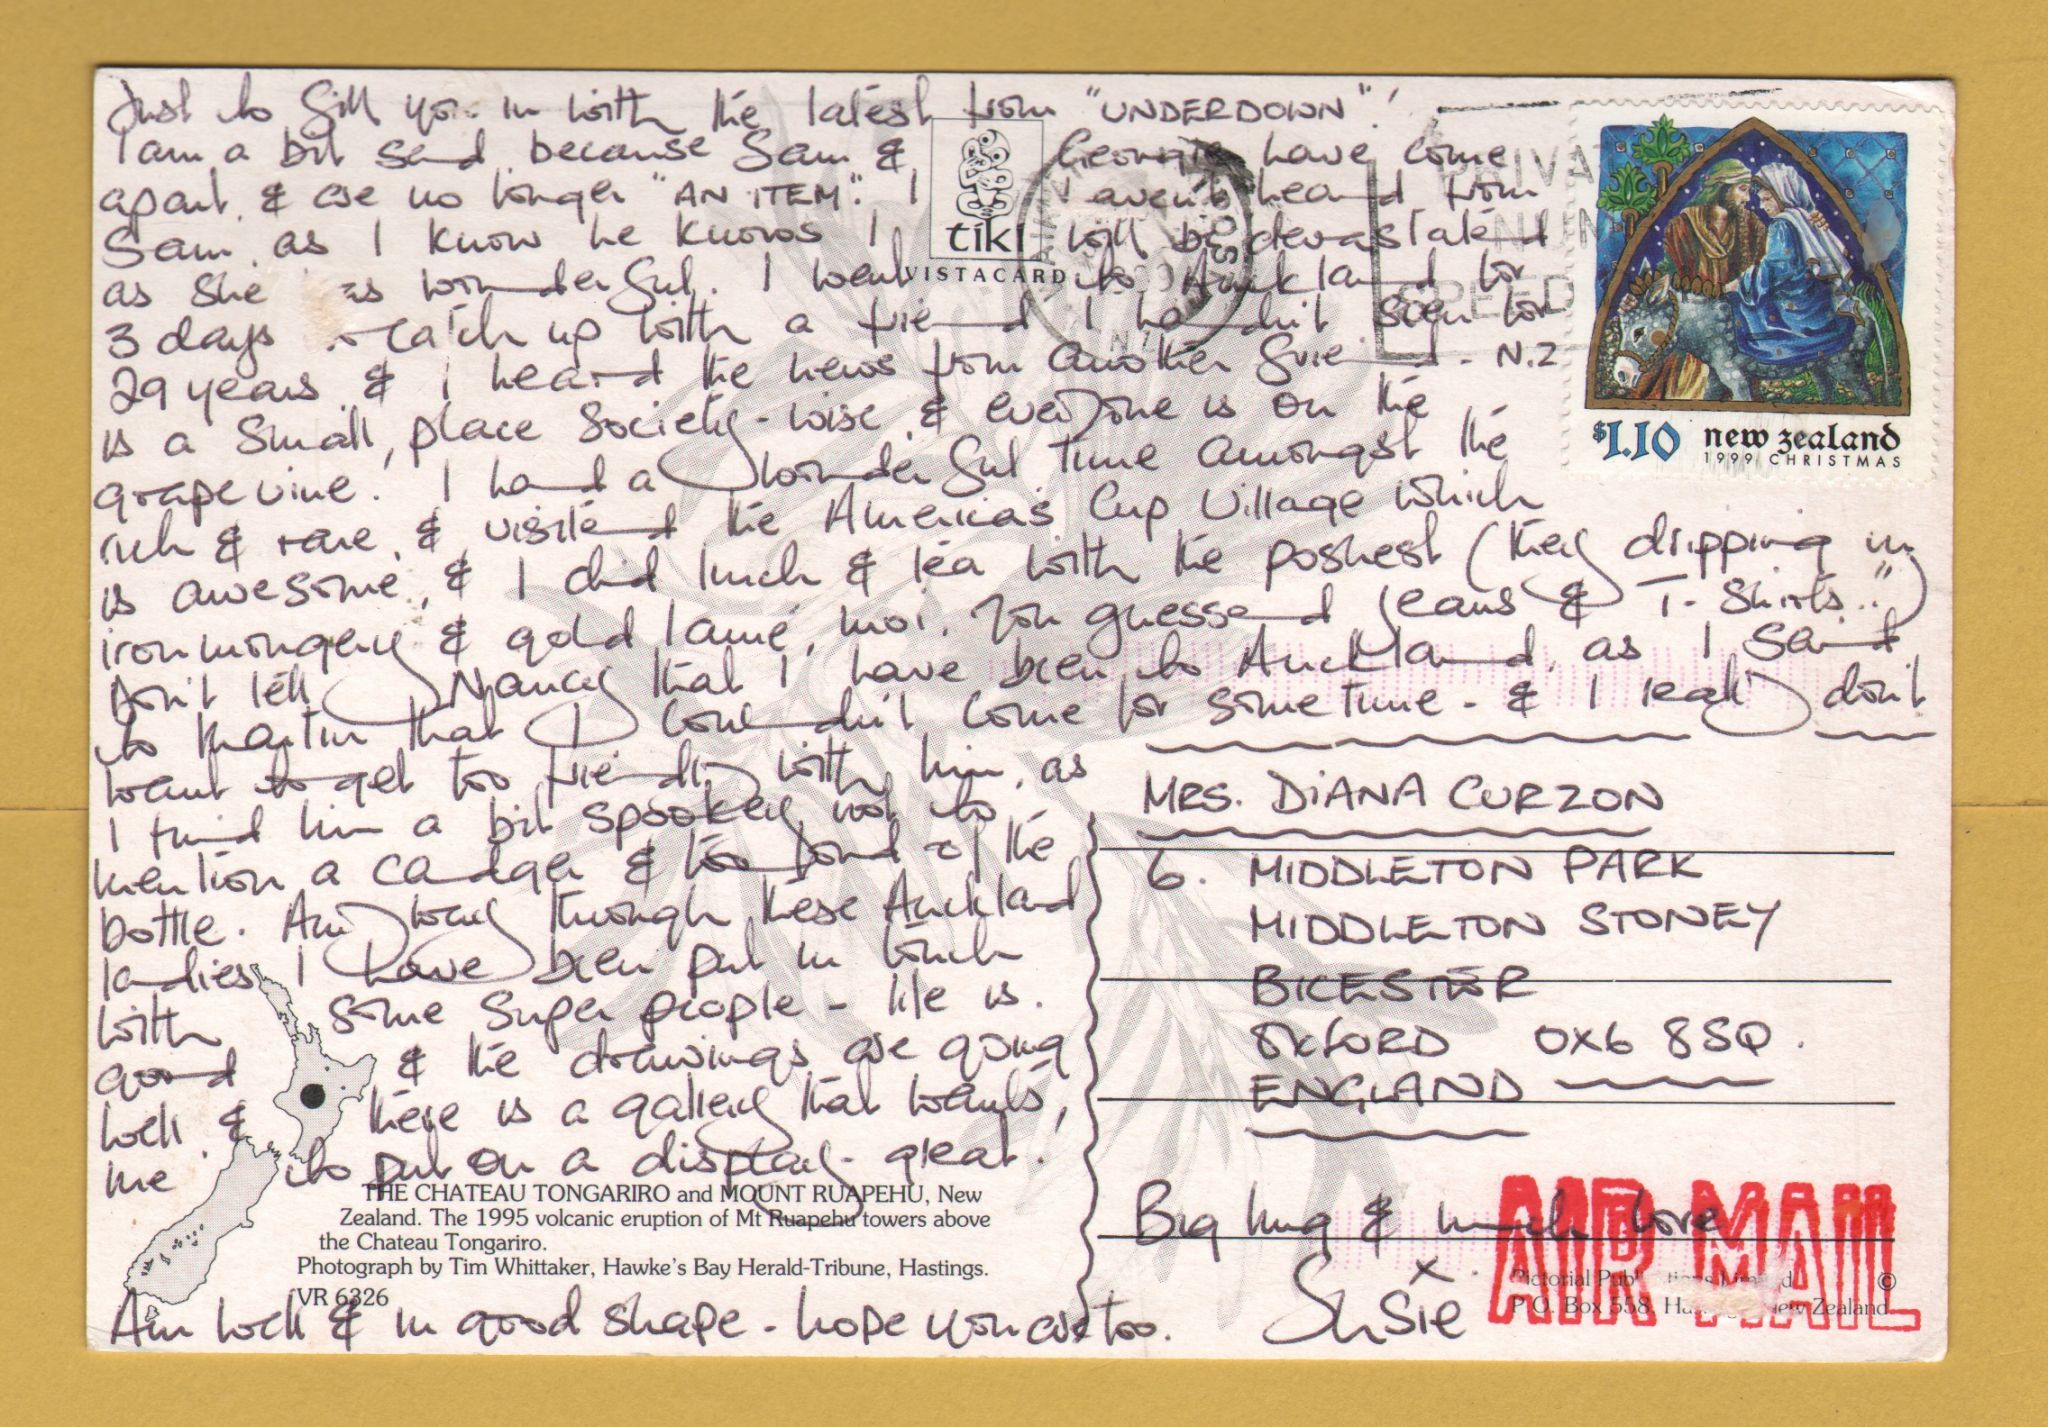 Just to fill you in with the latest from "UNDERDOWN"!
I am a bit sad because Sam & Georgie have come
apart, & are no longer "AN ITEM". I haven't heard from
Sam, as I know he knows I will be devastated
as she was wonderful. I went to Auckland for
3 days to catch up with a friend I hadn't seen for
29 years & I heard the news from another friend - N.Z
is a small place society-wise & everyone is on the
grapevine! I had a wonderful time amongst the
rich & rare, & visited the America's Cup Village which
is awesome, & I did lunch & tea with the poshest (they dripping in
ironmongery & gold lamé, moi, you guessed jeans & T-shirts..")
Don't tell Nancy that I have been to Auckland, as I said
to Martin that I couldn't come for some time - & I really don't
want to get too friendly with him, as
I find him a bit spookey, not to
mention a cadger & too fond of the
bottle. Anyway through these Auckland
ladies I have been put in touch
with some super people - life is
good & the drawings are going
well & there is a gallery that wants
me to put on a display - great!
Am well & in good shape - hope you are too.
Big hug & much love
x
Susie
tiki
VISTACARD
PRIVAT
SPEED
$1.10 new zealand
1999 CHRISTMAS
MRS. DIANA CURZON
6. MIDDLETON PARK
MIDDLETON STONEY
BICESTER
OXFORD OX6 8SQ.
ENGLAND
AIR MAIL
THE CHATEAU TONGARIRO and MOUNT RUAPEHU, New
Zealand. The 1995 volcanic eruption of Mt Ruapehu towers above
the Chateau Tongariro.
Photograph by Tim Whittaker, Hawke's Bay Herald-Tribune, Hastings.
VR 6326
Pictorial Publications Limited ©
P.O. Box 558, New Zealand